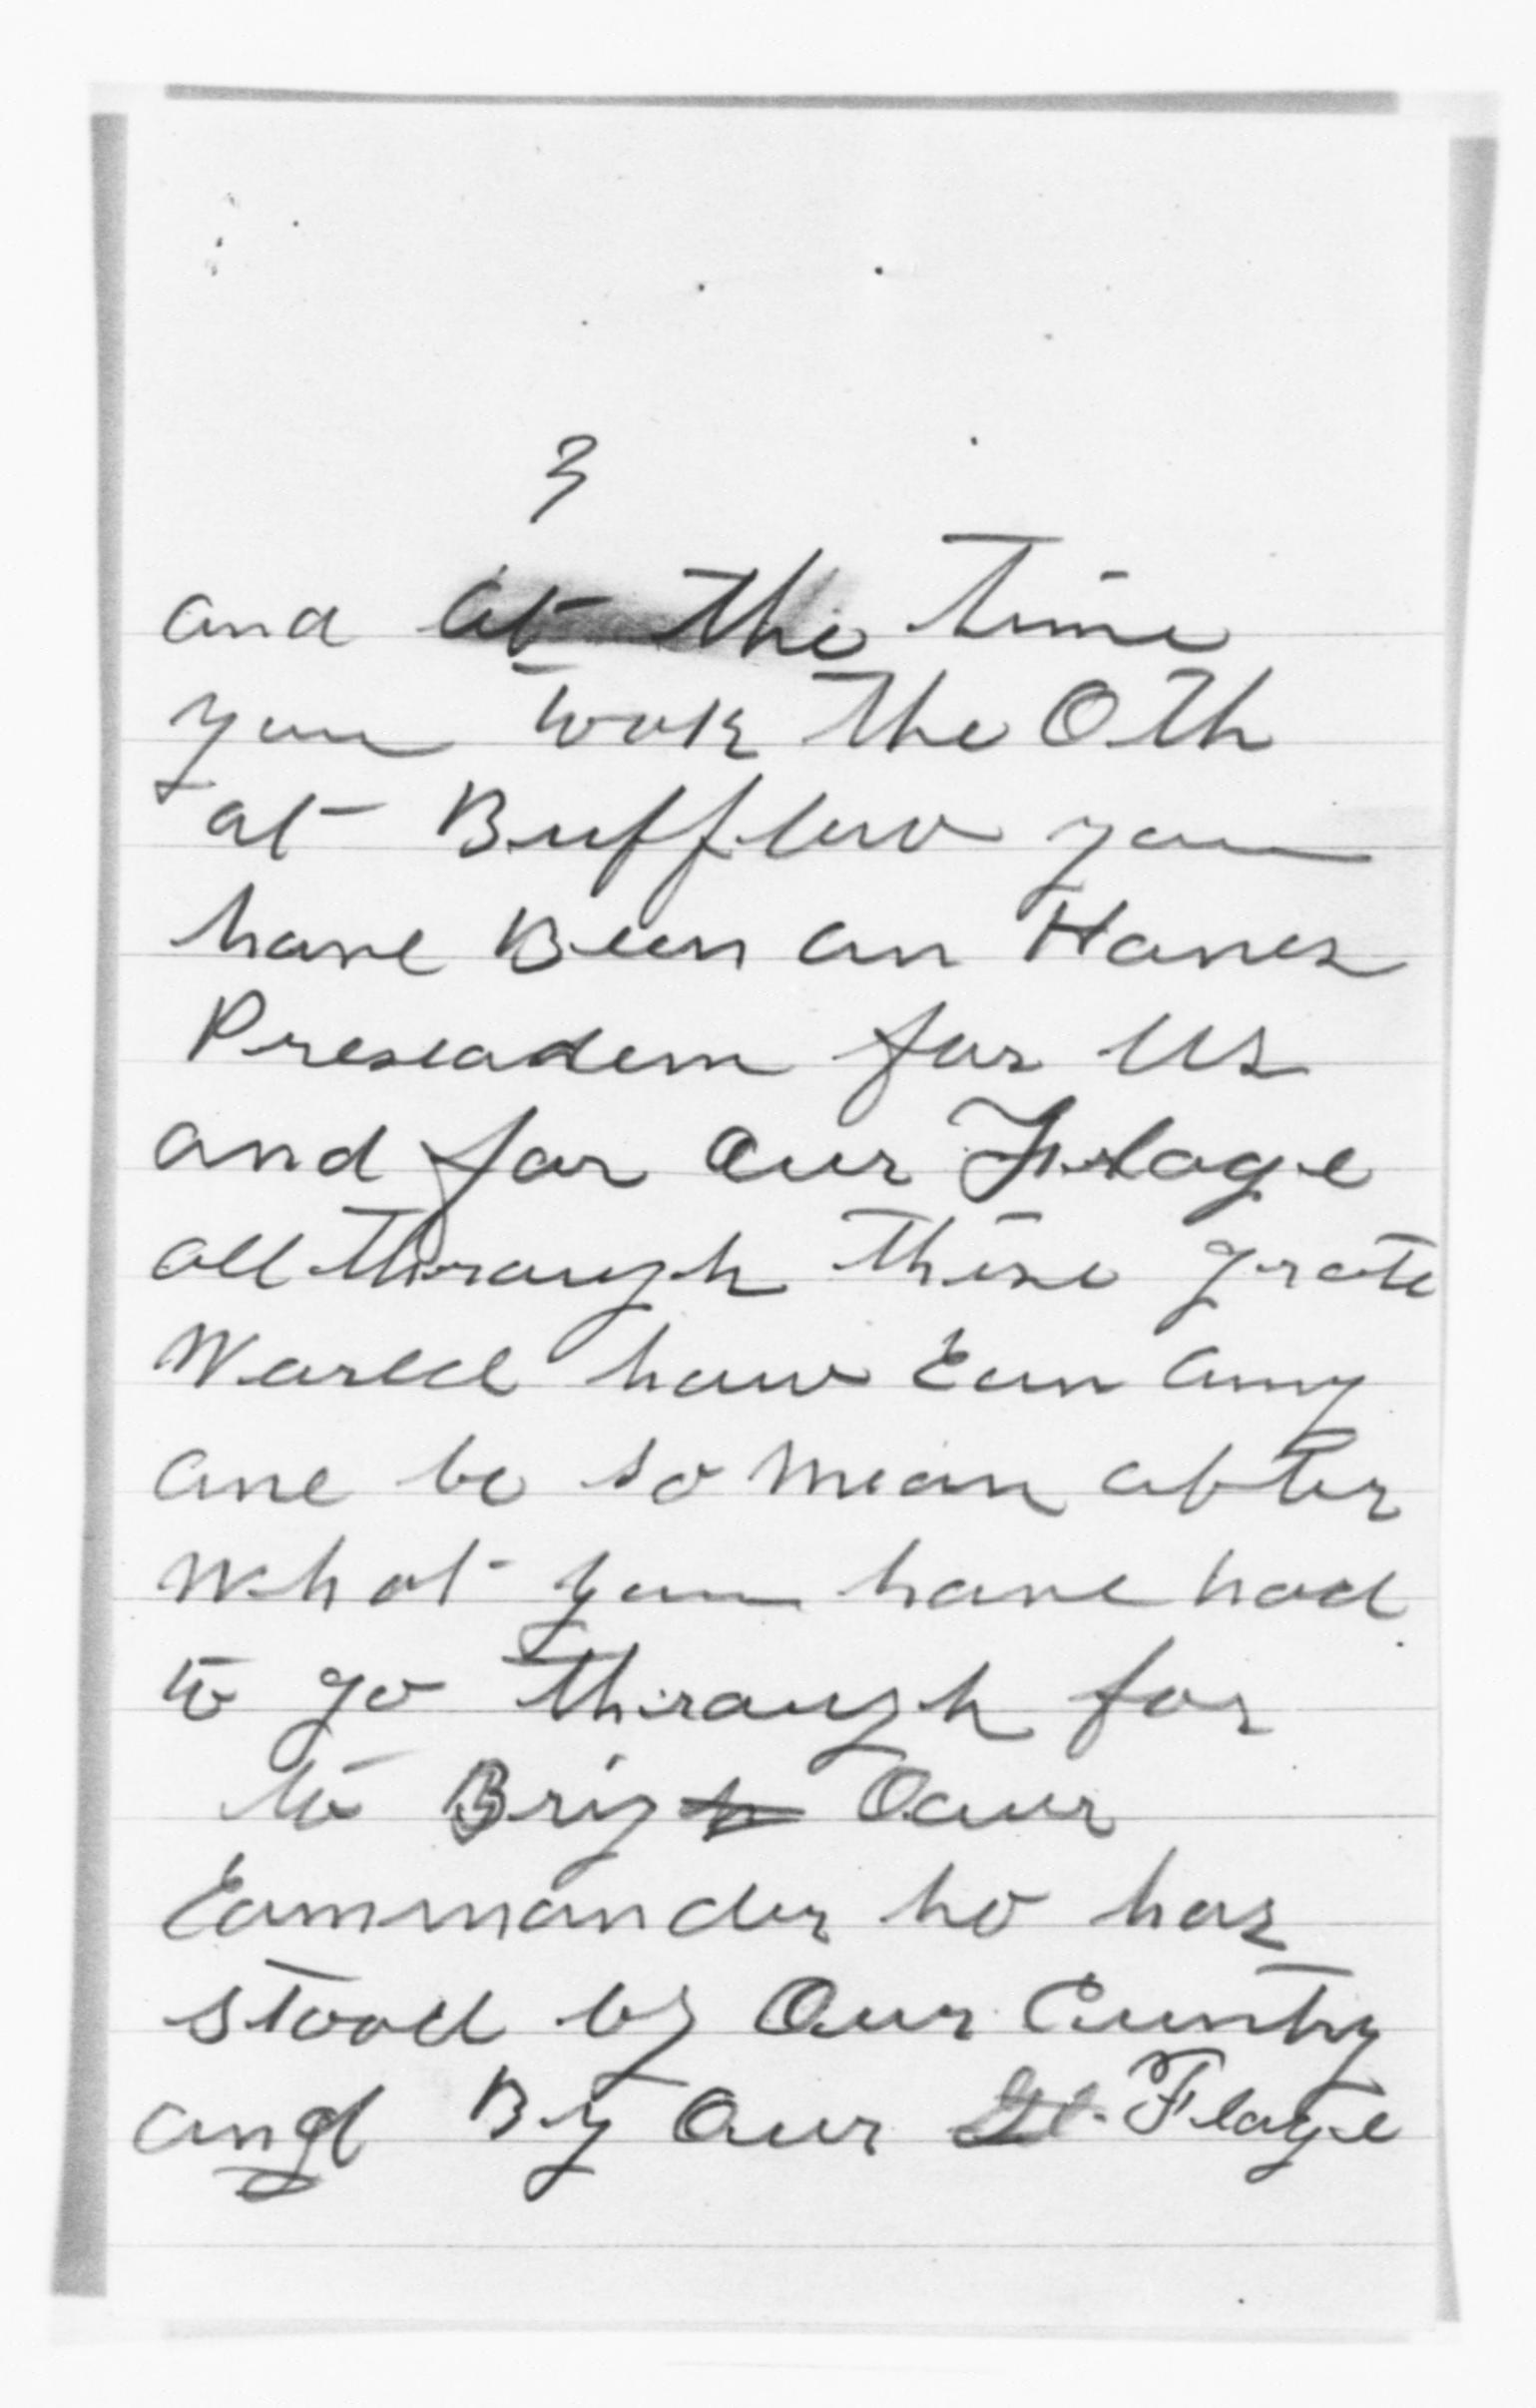 3
and at the time
you took the Oth
at Bufflow you
have Been an Hones
Preseadem for Us
and for Our Flage
all through these grate
World how Can any
one be so mean after
What you have had
to go through for
to Brig Oour
Commander ho has
stood by Our Cuntry
and By Our Flage